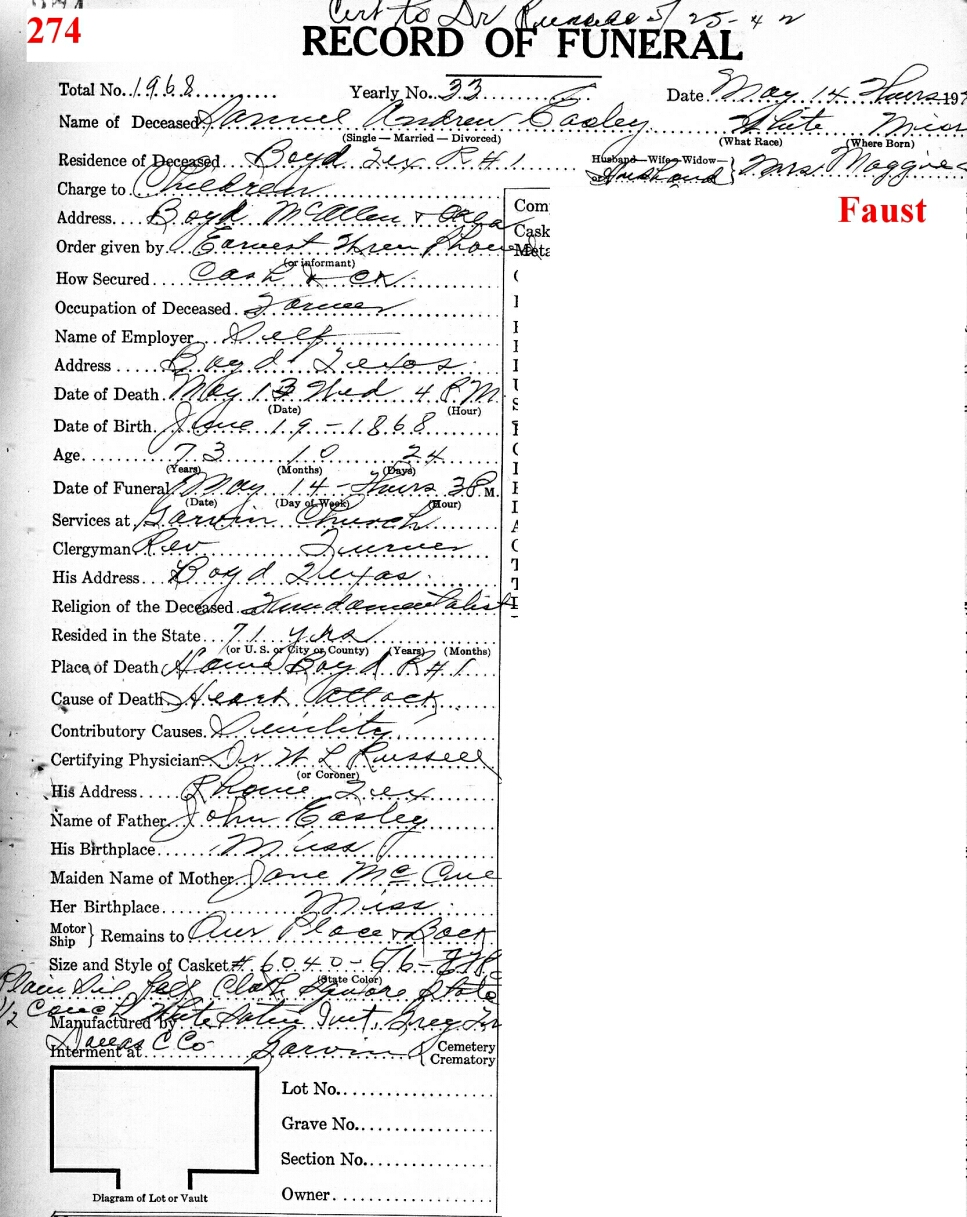 Cert to Dr Russell 5/25-42
274
RECORD OF FUNERAL
Total No. 1968 Yearly No. 33 Date May 14 Thurs 19
Name of Deceased Samuel Andrew Easley White Miss
(Single — Married — Divorced) (What Race) (Where Born)
Residence of Deceased Boyd Tex R#1 Husband—Wife—Widow— or Husband } Mrs. Maggie
Charge to Children
Faust
Address Boyd McAllen &
Com
Cask
Order given by Earnest Wren Phone
Meta
(or informant)
How Secured Cash & CK
Occupation of Deceased Farmer
Name of Employer Self
Address Boyd Texas
Date of Death May 13 Wed 4 P.M.
(Date) (Hour)
Date of Birth June 19-1868
Age 73 10 24
(Years) (Months) (Days)
Date of Funeral May 14-Thurs 3 P.M.
(Date) (Day of Week) (Hour)
Services at Garvin Church
Clergyman Rev Turner
His Address Boyd Texas
Religion of the Deceased Fundamentalist
Resided in the State 71 yrs
(or U. S. or City or County) (Years) (Months)
Place of Death Home Boyd R#1
Cause of Death Heart Attack
Contributory Causes Senility
Certifying Physician Dr W L Russell
(or Coroner)
His Address Rhome Tex
Name of Father John Easley
His Birthplace Miss
Maiden Name of Mother Jane McCue
Her Birthplace Miss
Motor Ship } Remains to Our Place & Back
Size and Style of Casket # 6040-6/6-
(State Color)
Plain Sil Cloth Square State
1/2 Couch White Satin Int. Grey
Manufactured by
Dallas C Co
Interment at Garvin { Cemetery Crematory
Lot No.
Grave No.
Section No.
Owner
Diagram of Lot or Vault